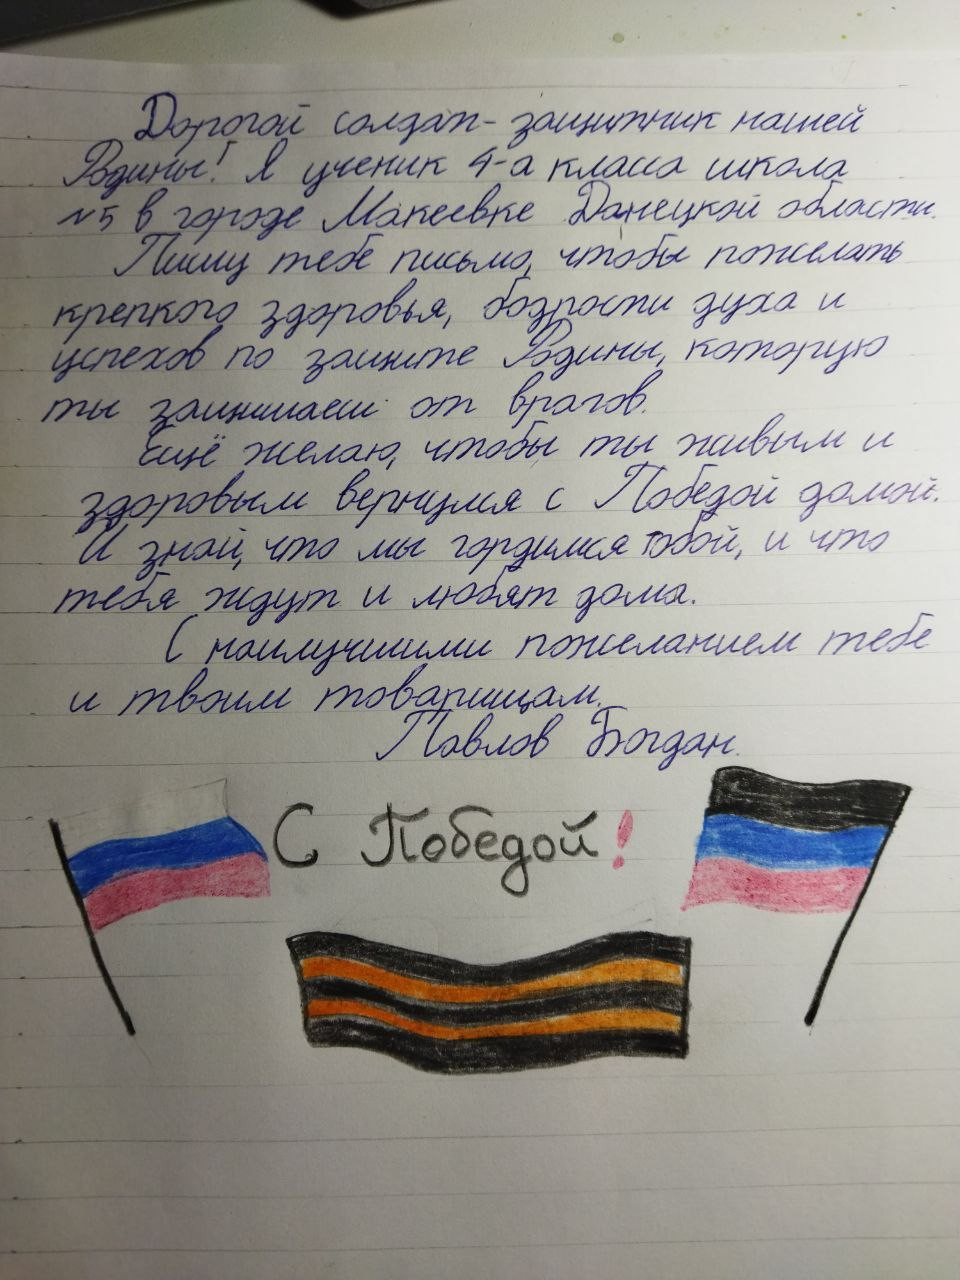 Дорогой солдат-защитник нашей
Родины! Я ученик 4-а класса школа
№5 в городе Макеевке Данецкой области.
Пишу тебе письмо, чтобы пожелать
крепкого здоровья, бодрости духа и
успехов по защите Родины, которую
ты защищаеш от врагов.
Ещё желаю, чтобы ты живым и
здоровым вернулся с Победой домой.
И знай, что мы гордимся тобой, и что
тебя ждут и любят дома.
С наилучшими пожеланием тебе
и твоим товарищам.
Павлов Богдан.
С Победой!